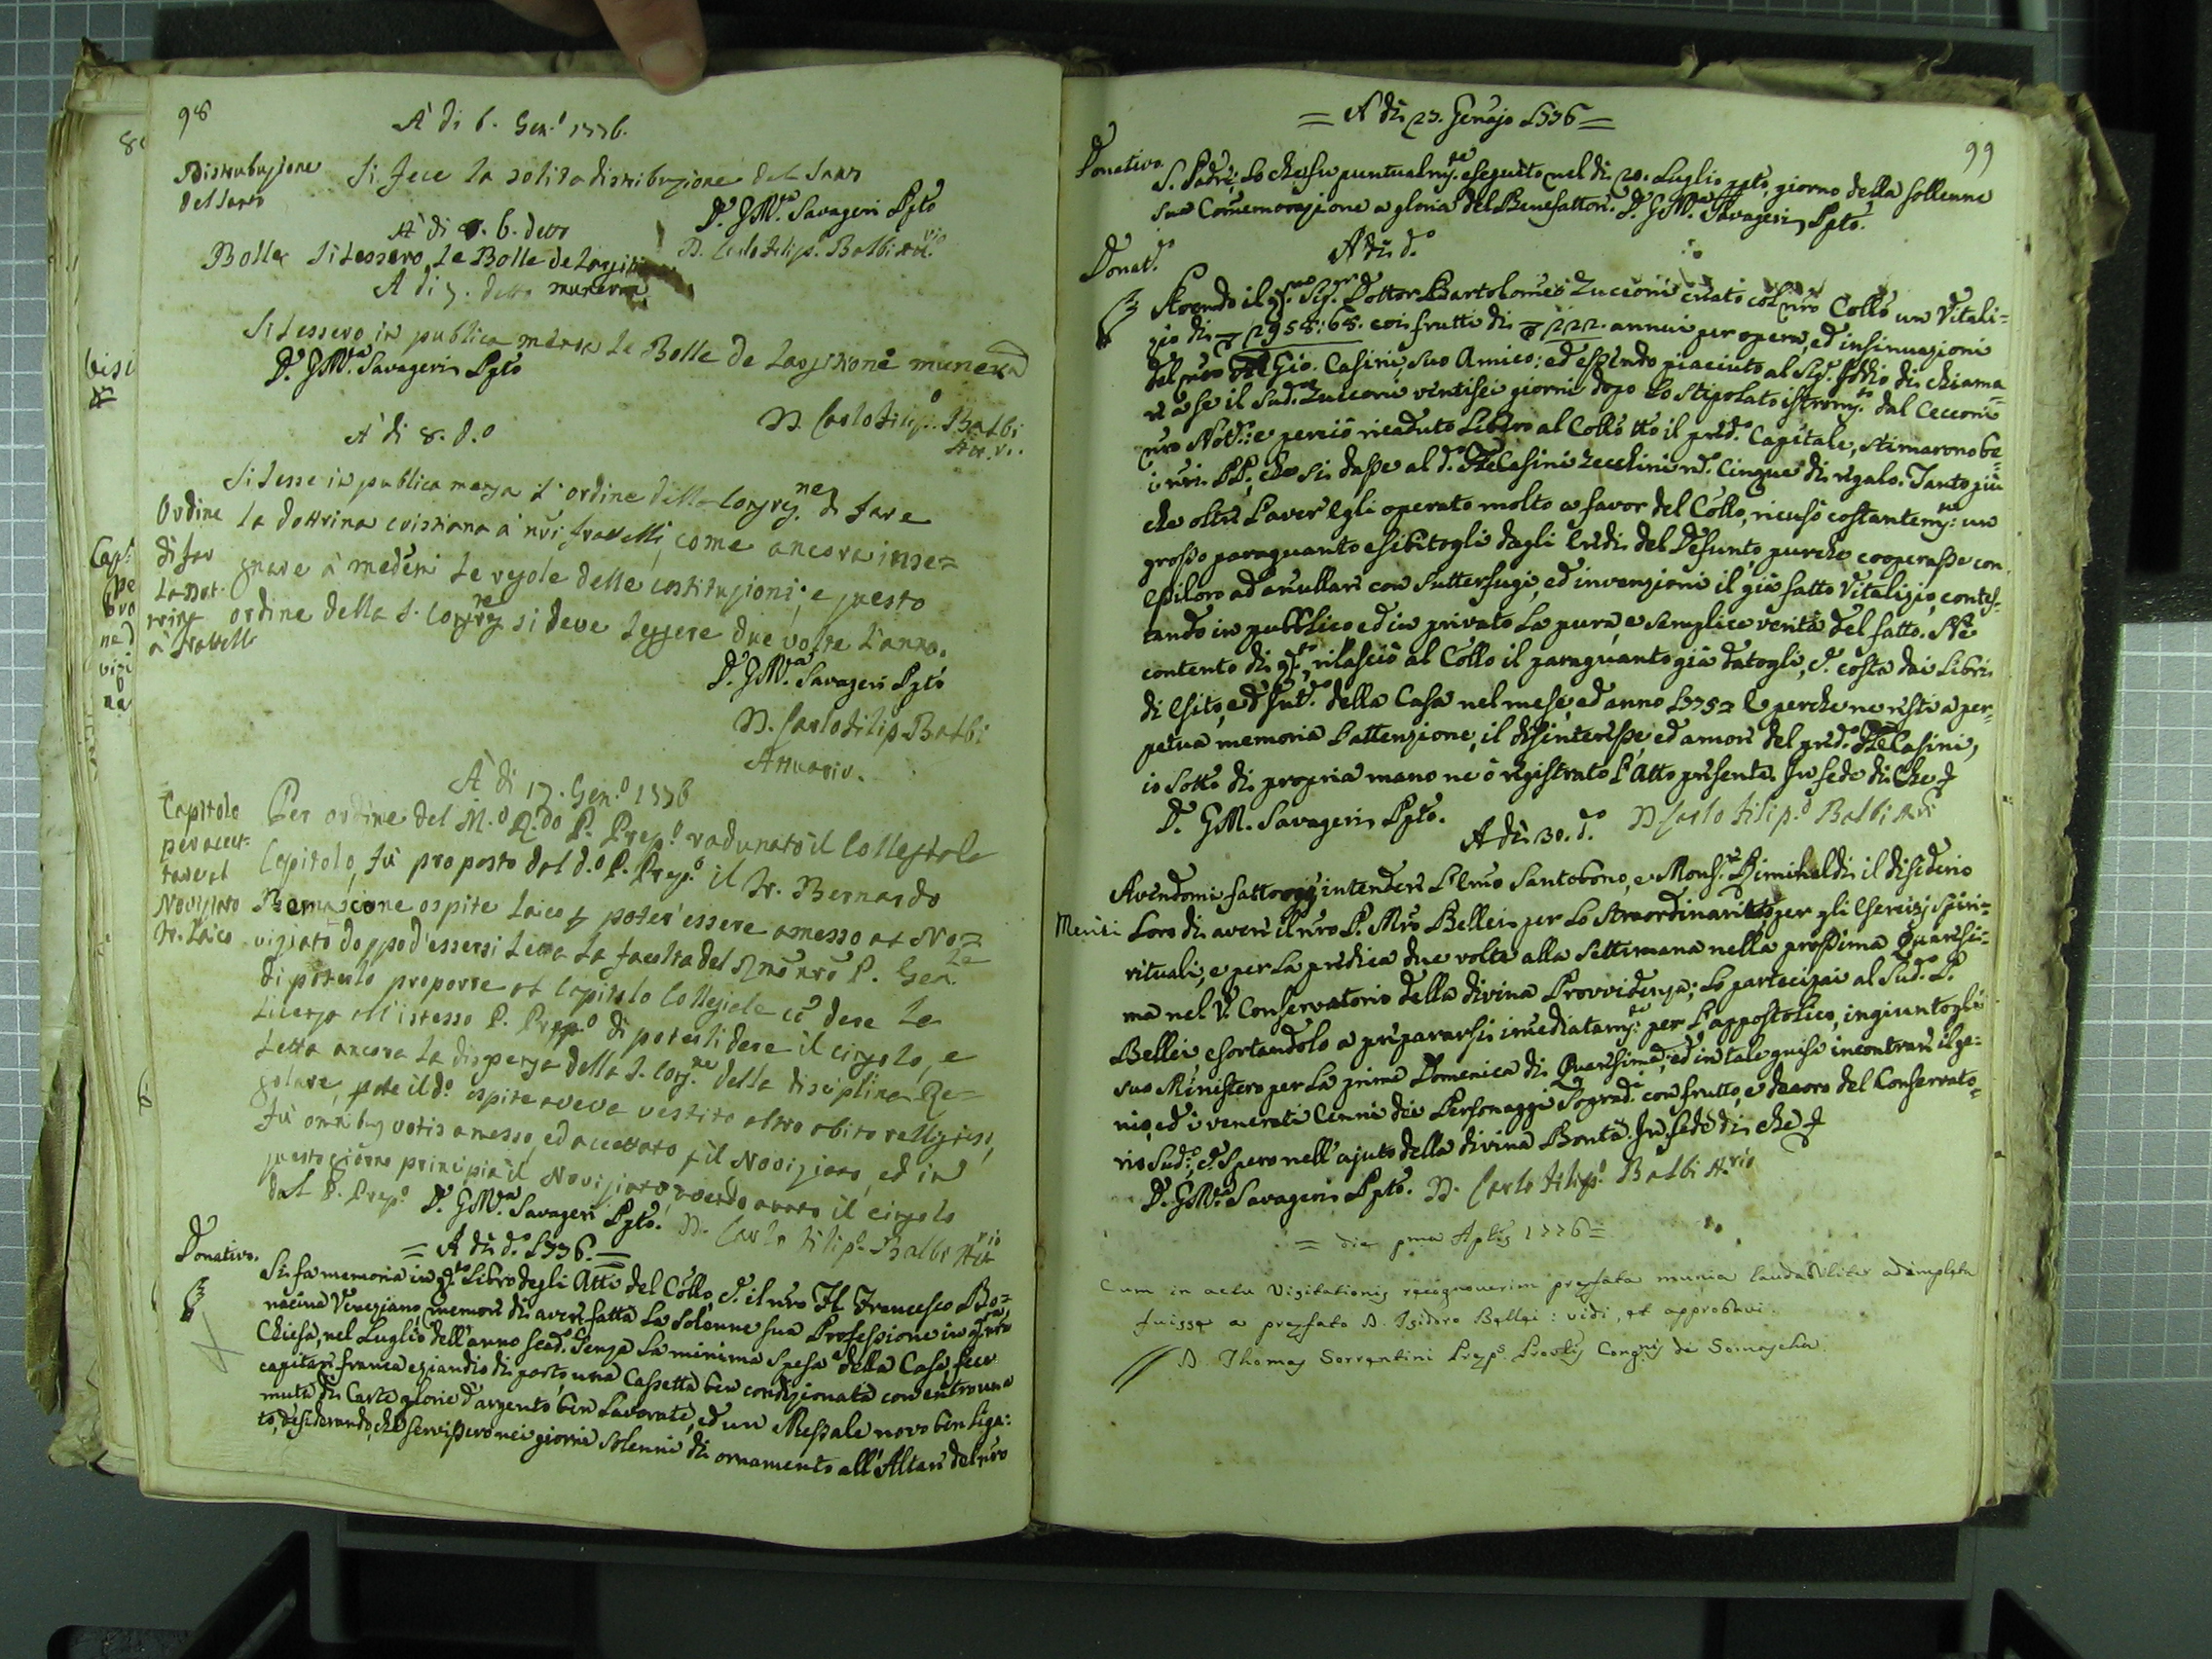 98
À di 6. Gen.º 1776.
Distribuzione
del Santo
Si fece la solita distribuzione del Santo
D. GM.ª Savageri Ppto
D. Carlo Filip.º Balbi Att.rio
À di 6. detto
Bolle Si lessero le Bolle de Largitione
À di 7. detto munerum
Si lessero in publica mensa le Bolle de Largitione munerum
D. GM.ª Savageri Ppto
D. Carlo Filip.º Balbi
Att.rio
À di 8. d.º
Ordine
di far
la Dot-
trina
à Fratelli
Si lesse in publica mensa l'ordine della Congreg.ne di fare
la dottrina cristiana à nri fratelli, come ancora inse=
gnare à medemi le regole delle costituzioni; e questo
ordine della S. Congreg.ne si deve leggere due volte l'anno.
D. GM.ª Savageri Ppto
D. Carlo Filip. Balbi
Attuario.
À di 17. Gen.º 1776
Capitolo
per accet-
tare al
Noviziato
Fr. Laico
Per ordine del M.º R.do P. Prep.º radunato il Collegiale
Capitolo, fù proposto dal d.º P. Prep.º il Fr. Bernardo
Bernascone ospite laico p poter essere amesso al No=
viziato doppo d'essersi letta la facoltà del Rmo nro P. Gen.le
di poterlo proporre al Capitolo Collegiale
licenza all'istesso P. Prep.º di poterli dare il cingolo, e
letta ancora la dispenza della S. Cong.ne della disciplina Re=
golare, il d.º ospite aveva vestito altro abito relligioso,
fù omnibus votis amesso, ed accettato p il Noviziato, ed in
questo giorno principia il Noviziato avendo avuto il cingolo
dal P. Prep.º D. GM.ª Savageri Ppto. D. Carlo Filip.º Balbi Att.rio
= A dì d.º 1776. =
Donativo.
Si fa memoria in q.to Libro degli Atti del Collo, c.e il nro Fr. Francesco Bo=
nacina Veneziano, memore di aver fatta la solenne sua Professione in q.ta nra
Chiesa, nel Luglio dell'anno scad.º senza la minima spesa della Casa, fece
capitare franca eziandio di porto, una Cassetta ben condizionata con entro una
muta di Carte glorie d'argento ben lavorate, ed un Messale novo ben liga=
to, desiderando, che servissero nei giorni solenni di ornamento all'Altare del nro
= A dì 23. Genajo 1776 =
99
Donativo
S. Padre; lo che fu puntualm.te eseguito nel di 20. Luglio ppto, giorno della sollenne
sua Comemorazione a gloria del Benefattore. D. GM.ª Savageri Ppto.
A dì d.º
Donat.º
Avendo il q.m Sig.r Dottor Bartolomeo Zucconi creato col nro Collo un Vitali=
zio di 2958:68. coi frutti di 222. annui per opera, ed insinuazioni
del nro Gio. Casini, suo Amico: ed essendo piaciuto al Sig.r Iddio di chiama=
re a se il sud.º Zucconi ventisei giorni dopo lo stipolato istrom.to dal Cecconi
nro Not.º: e perciò ricaduto libero al Collo tto il pred.º Capitale, stimarono be=
i nri PP. che si dasse al d.º Casini zecchini n.º Cinque di regalo. Tanto più
che oltre l'aver egli operato molto a favor del Collo, ricusò costantem.te un
grosso paraguanto esibitogli dagli Eredi del Defunto, purche cooperasse con
essiloro ad anullare con sutterfugi, ed invenzioni il già fatto Vitalizio, contes=
tando in pubblico ed in privato la pura, e semplice verità del fatto. Nè
contento di q.to, rilasciò al Collo il paraguanto già datogli, c.e costa dai Libri
di Esito, ed Int.º della Casa nel mese, ed anno 1775= E perche ne resti a per=
petua memoria l'attenzione, il disinteresse, ed amore del pred.º Casini,
io sotto di propria mano ne ò registrato l'Atto presente. In fede di che
D. GM. Savageri Ppto. D. Carlo Filip.º Balbi Att.rio
A dì 30. d.º
Avendomi fatto oggi intendere l'Emo Santobono, e Mons.re Riminaldi il disiderio
Meriti loro di avere il nro P. Mro Bellei per lo straordinariato per gli Esercizj Spiri=
rituali, e per la predica due volte alla Settimana nella prossima Quaresi=
ma nel V. Conservatorio della divina Provvidenza; lo partecipai al Sud.º P.
Bellei esortandolo a prepararsi imediatam.te per l'appostolico, ingiuntogli
suo Ministero per la prima Domenica di Quaresima; ed in tale guisa incontrare il ge=
nio, ed i venerati Cenni dei Personaggi Sograd.i con frutto, e decoro del Conservato=
rio Sud.º, c.e Spero nell'ajuto della divina Bontà. In fede di che
D. GM.ª Savageri Ppto. D. Carlo Filip.º Balbi At.rio
= die pma Aplis 1776 =
Cum in actu Visitationis recognoverim prefata munia laudabiliter adimpleta
fuisse a prefato D. Isidoro Bellei: vidi, et approbavi.
D. Thomas Sorrentini Prep.s Provlis Congnis de Somascha